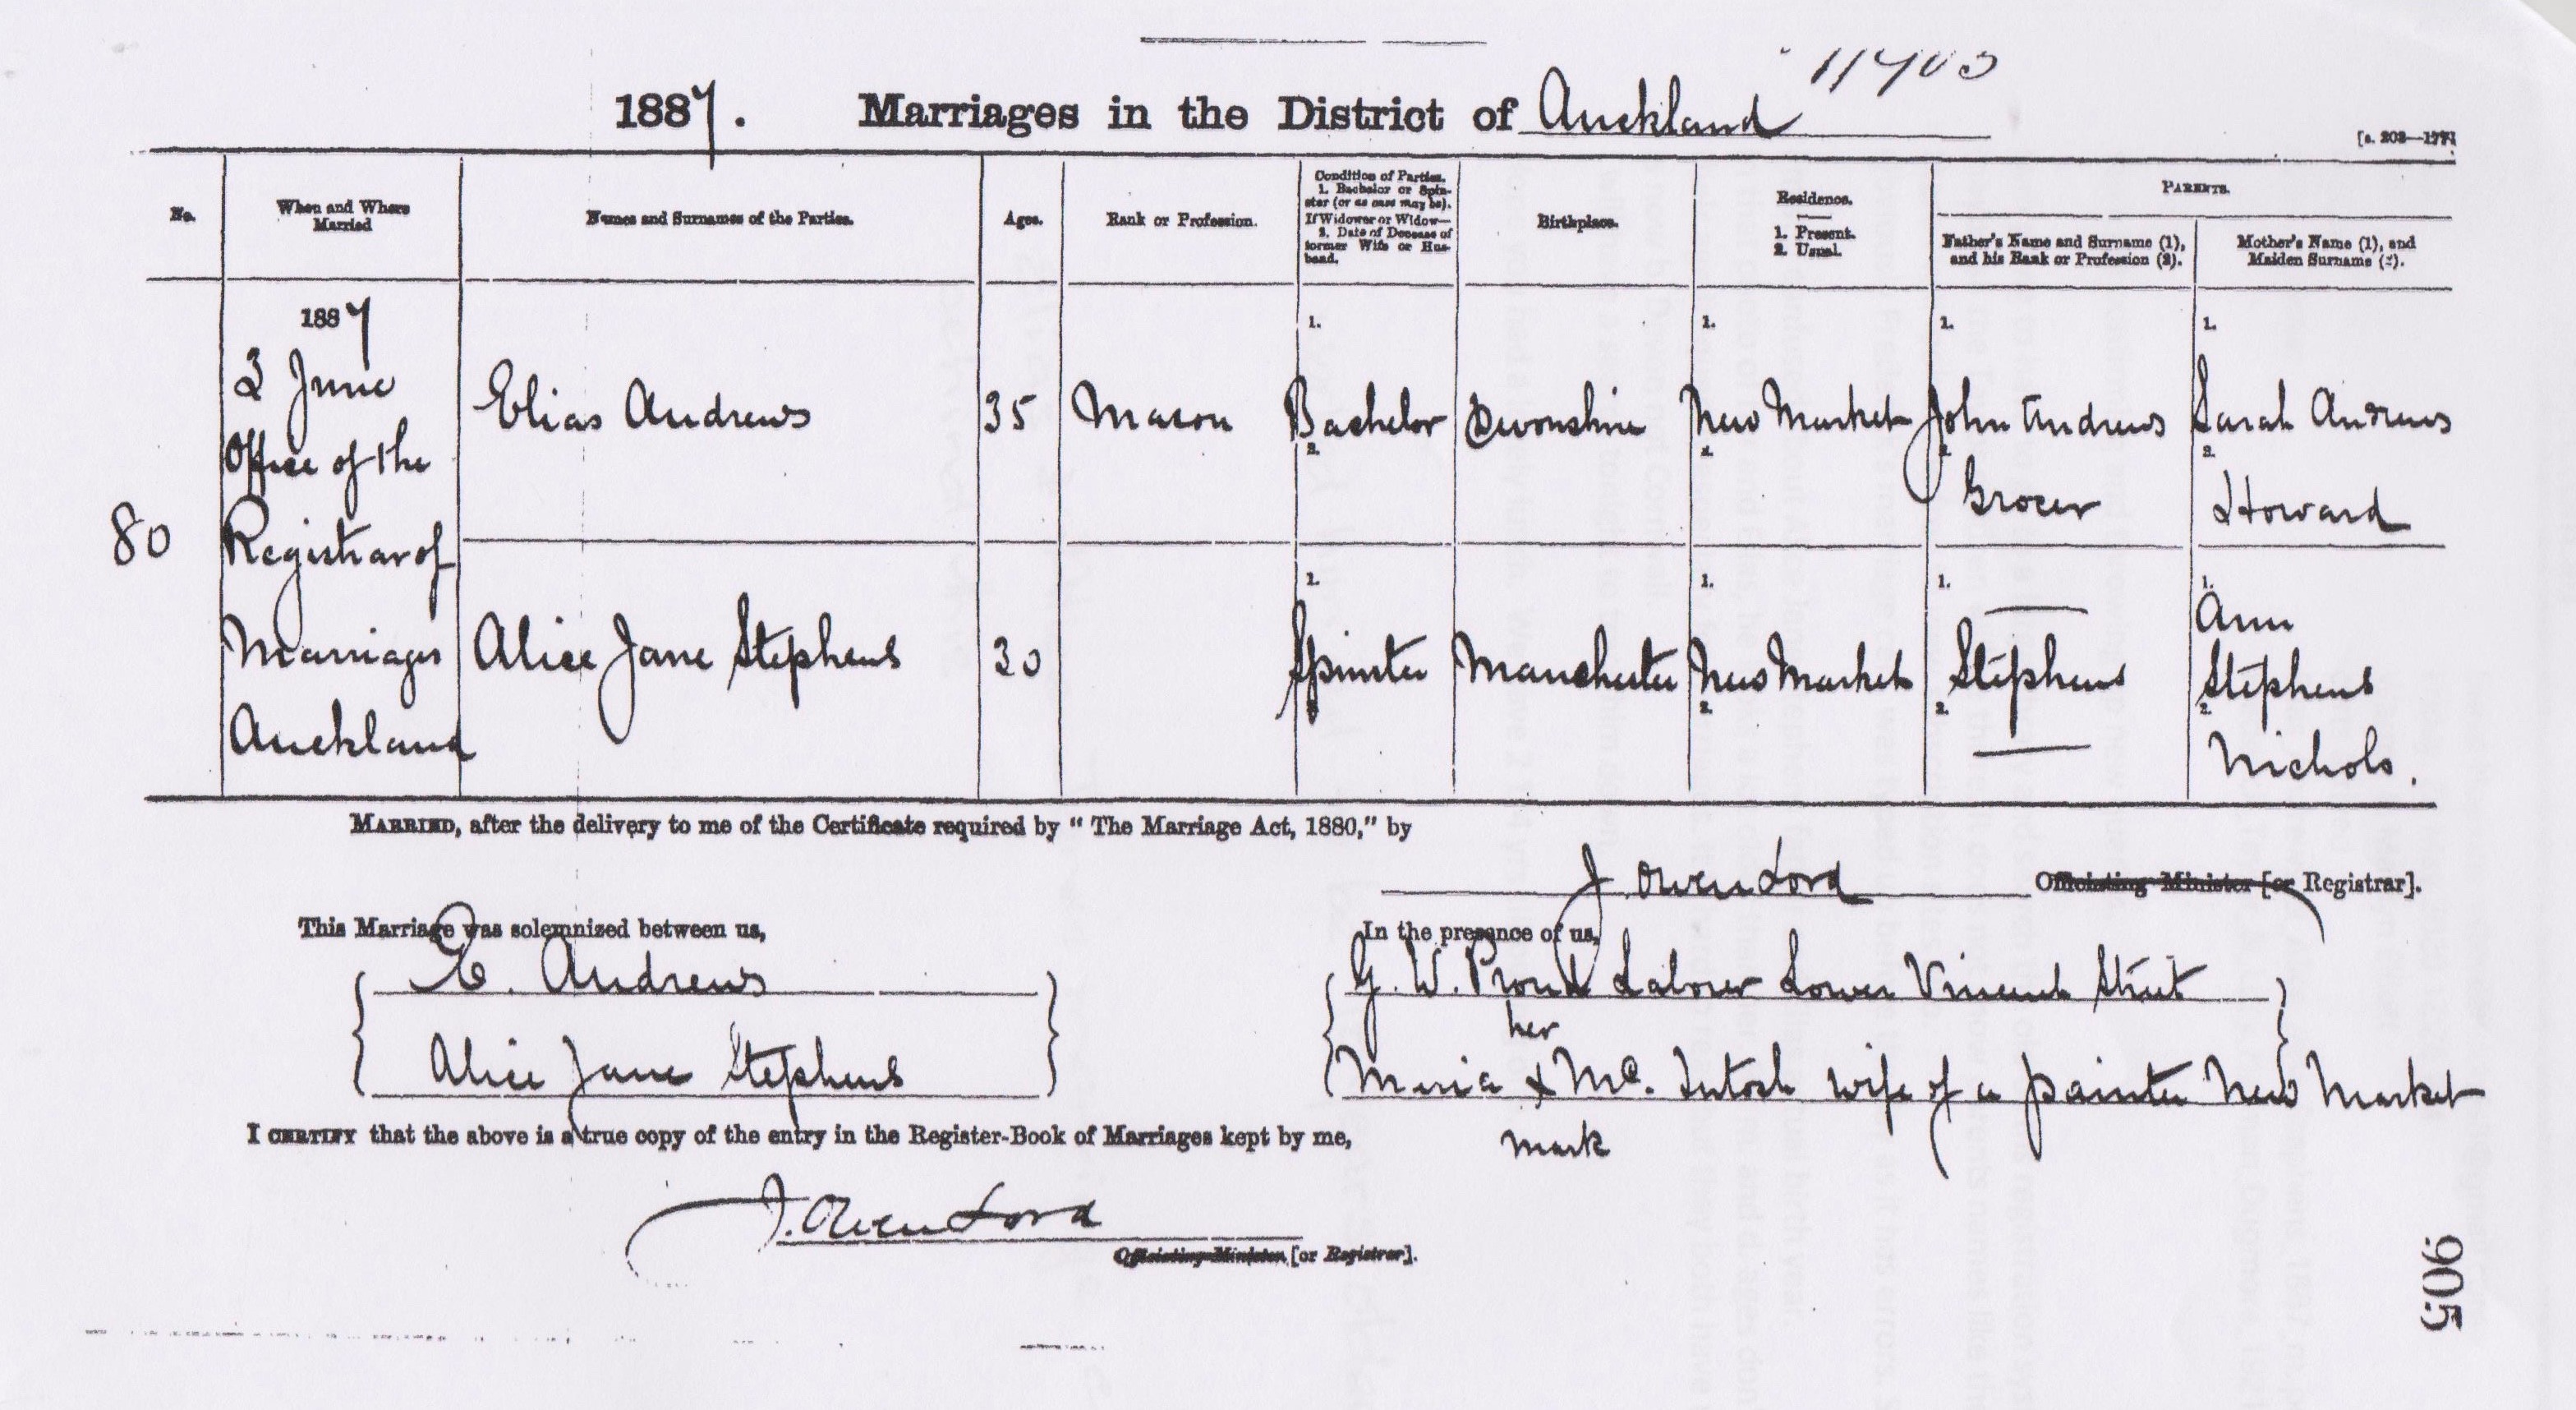 1887. Marriages in the District of Auckland
No.
When and Where
Married
Names and Surnames of the Parties.
Ages.
Rank or Profession.
Condition of Parties.
1. Bachelor or Spin-
ster (or as case may be).
If Widower or Widow—
2. Date of Decease of
former Wife or Hus-
band.
Birthplace.
Residence.
1. Present.
2. Usual.
PARENTS.
Father's Name and Surname (1),
and his Rank or Profession (2).
Mother's Name (1), and
Maiden Surname (2).
80
1887
2 June
Office of the
Registrar of
Marriages
Auckland
Elias Andrews
35
Mason
1.
Bachelor
2.
Devonshire
1.
New Market
2.
1.
John Andrews
2.
Grocer
1.
Sarah Andrews
2.
Howard
Alice Jane Stephens
30
1.
Spinster
2.
Manchester
1.
New Market
2.
1.
—
Stephens
2.
—
1.
Ann
Stephens
2.
Nichols.
MARRIED, after the delivery to me of the Certificate required by "The Marriage Act, 1880," by
J. Owen Lord Officiating Minister [or Registrar].
This Marriage was solemnized between us,
E. Andrews
Alice Jane Stephens
In the presence of us,
G. W. Labourer Lower Vincent Street
her
Maria x Mc. Intosh wife of a painter New Market
mark
I CERTIFY that the above is a true copy of the entry in the Register-Book of Marriages kept by me,
J. Owen Lord
Officiating Minister [or Registrar].
905